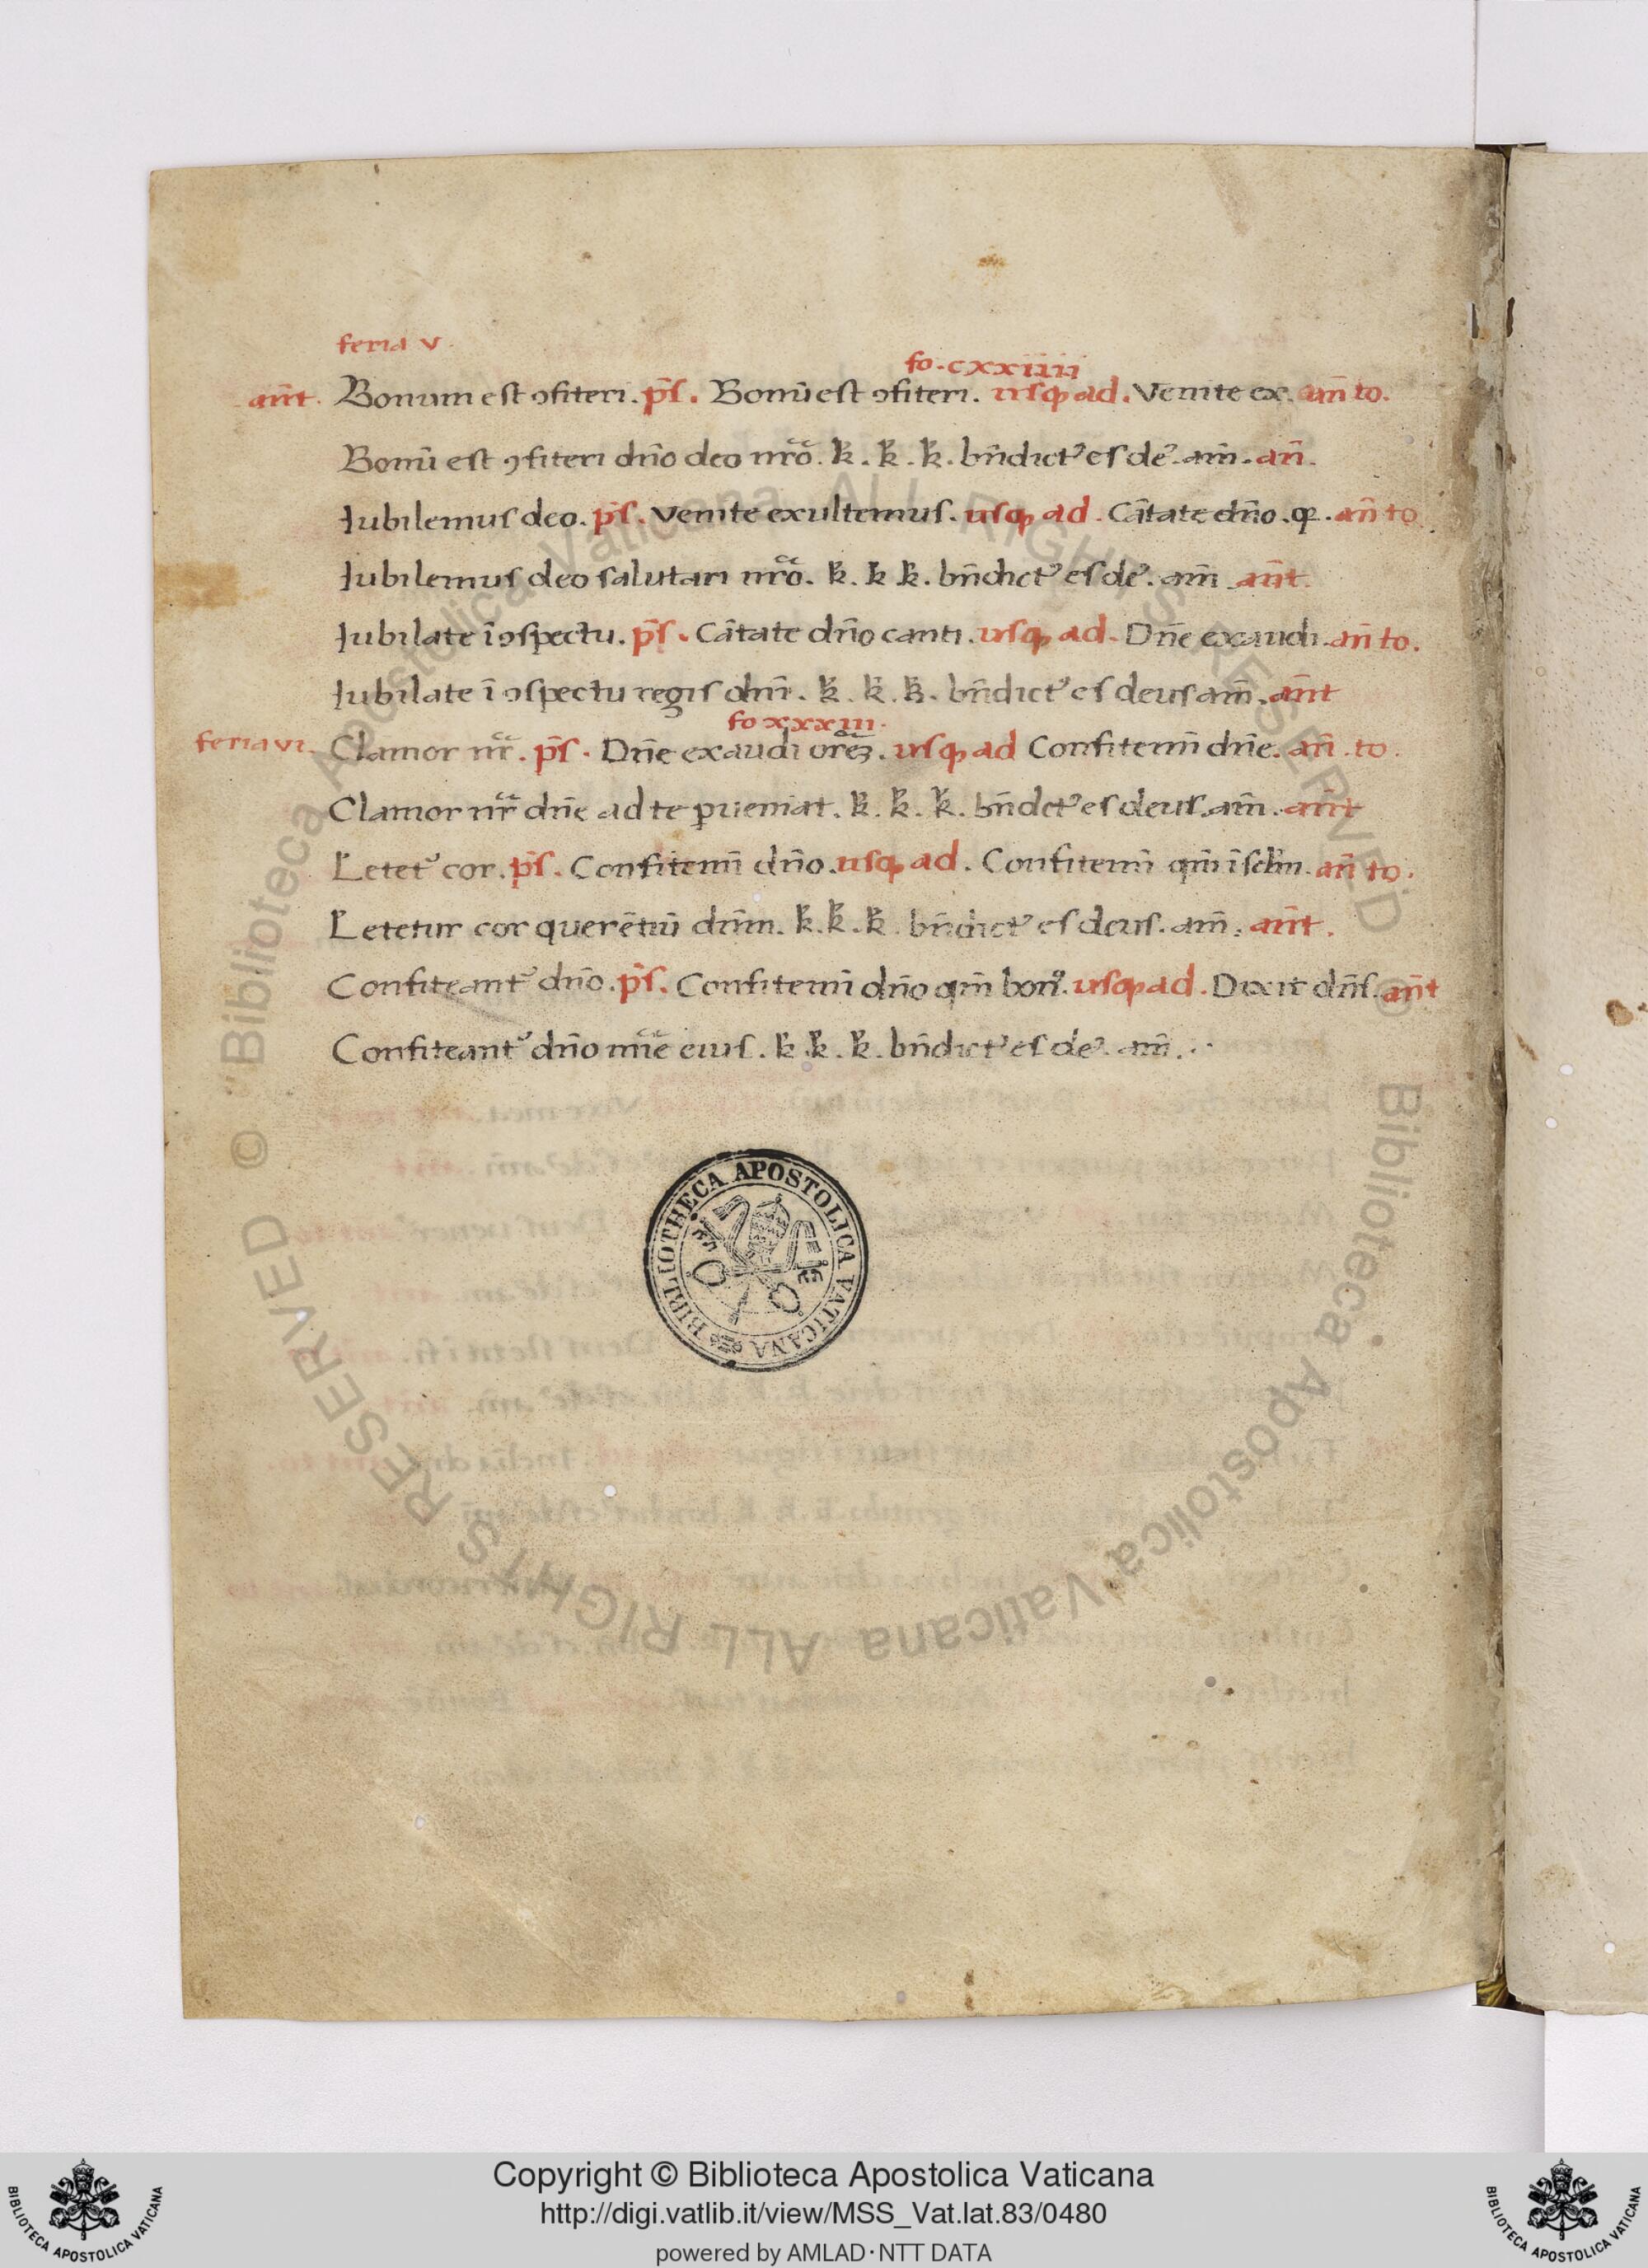 feria v.
fo. cxxiiii
ant̄. Bonum est ꝯfiteri. p̄s. Bonū est ꝯfiteri. usqꝫ ad. Venite ex. an̄ to.
Bonū est ꝯfiteri dn̄o deo nr̄o. k̄. k̄. k̄. bn̄dictꝰ es deꝰ. am̄. an̄.
Iubilemus deo. p̄s. Venite exultemus. usqꝫ ad. Cātate dn̄o. q. an̄ to
Iubilemus deo salutari nr̄o. k̄. k̄ k̄. bn̄dictꝰ es deꝰ. am̄ ant̄.
Iubilate ī ꝯspectu. p̄s. Cātate dn̄o canti. usqꝫ ad. Dn̄e exaudi. an̄ to.
Iubilate ī ꝯspectu regis dn̄i. k̄. k̄. k̄. bn̄dictꝰ es deus am̄. ant̄
fo xxxiii.
feria vi. Clamor nr̄. p̄s. Dn̄e exaudi or̄eꝫ. usqꝫ ad Confitemī dn̄e. an̄. to.
Clamor nr̄ dn̄e ad te ꝑueniat. k̄. k̄. k̄. bn̄dctꝰ es deus. am̄. ant̄
Letetꝰ cor. p̄s. Confitemī dn̄o. usqꝫ ad. Confitemī qm̄ ī sclm̄. an̄ to.
Letetur cor querētiū dnm̄. k̄. k̄. k̄. bn̄dictꝰ es deus. am̄. ant̄.
Confiteantꝰ dn̄o. p̄s. Confitemī dn̄o qm̄ bonꝰ. usqꝫ ad. Dixit dn̄s. ant̄
Confiteantꝰ dn̄o mīe eius. k̄. k̄. k̄. bn̄dictꝰ es deꝰ. am̄.
BIBLIOTHECA APOSTOLICA VATICANA
© Biblioteca Apostolica Vaticana ALL RIGHTS RESERVED
© Biblioteca Apostolica Vaticana ALL RIGHTS RESERVED
Copyright © Biblioteca Apostolica Vaticana
http://digi.vatlib.it/view/MSS_Vat.lat.83/0480
powered by AMLAD·NTT DATA
BIBLIOTECA APOSTOLICA VATICANA
BIBLIOTECA APOSTOLICA VATICANA